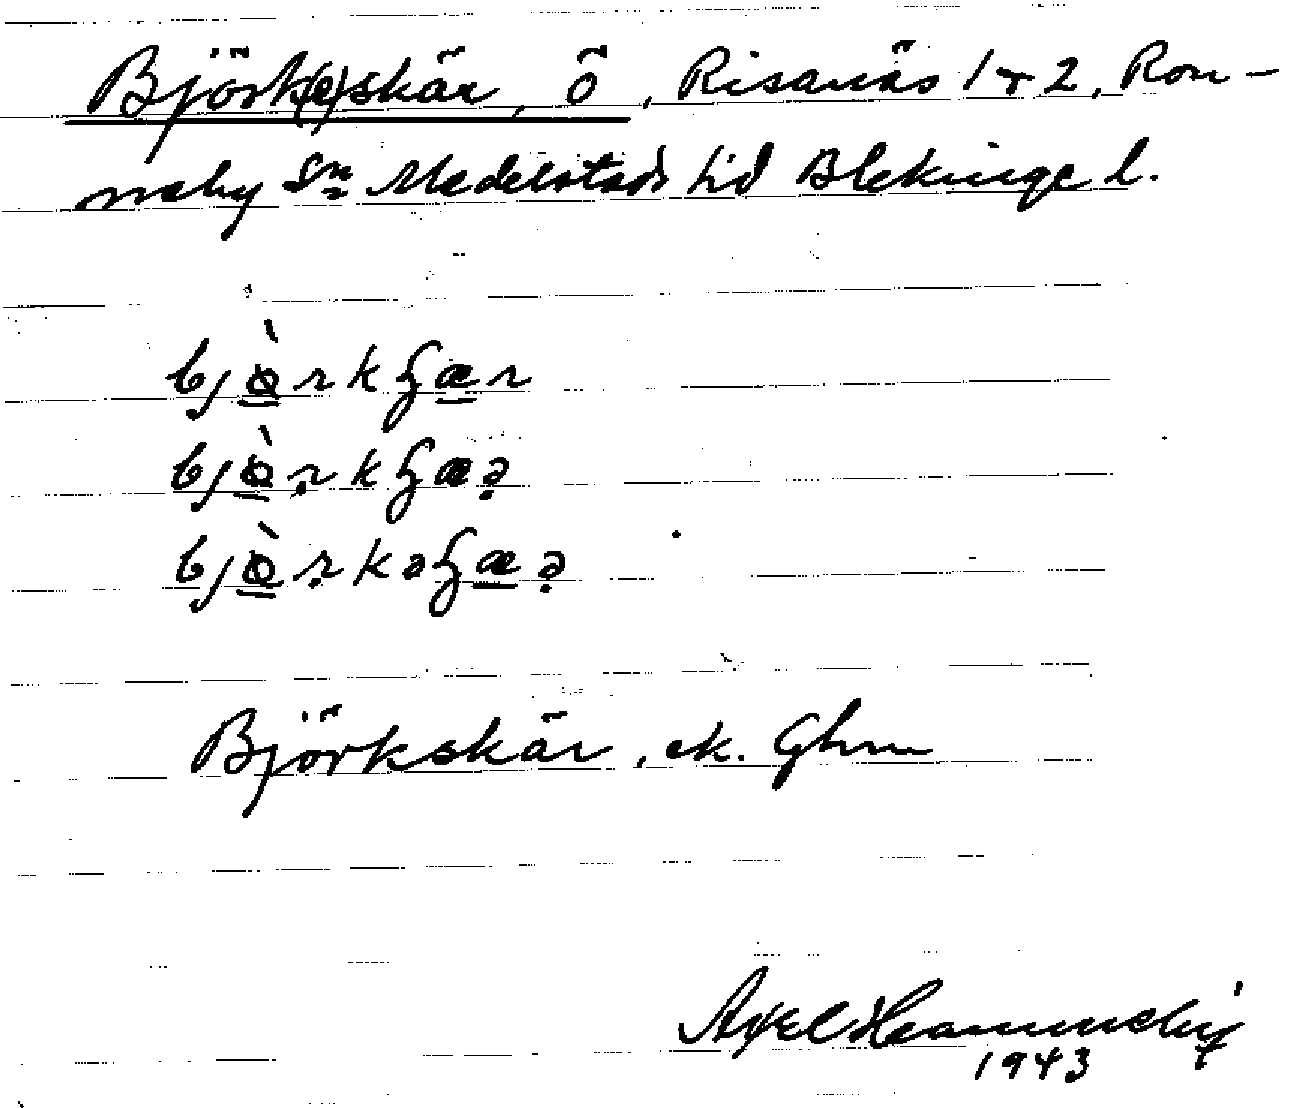 Björk(e)skär, ö, Risanäs 1+2, Ron-
neby sn Medelstads hd Blekinge l.
bjὼrkʃær
bjὼṛkʃæə̣
bjὼṛkəʃæə̣
Björkskär, ek.
Axel
1943